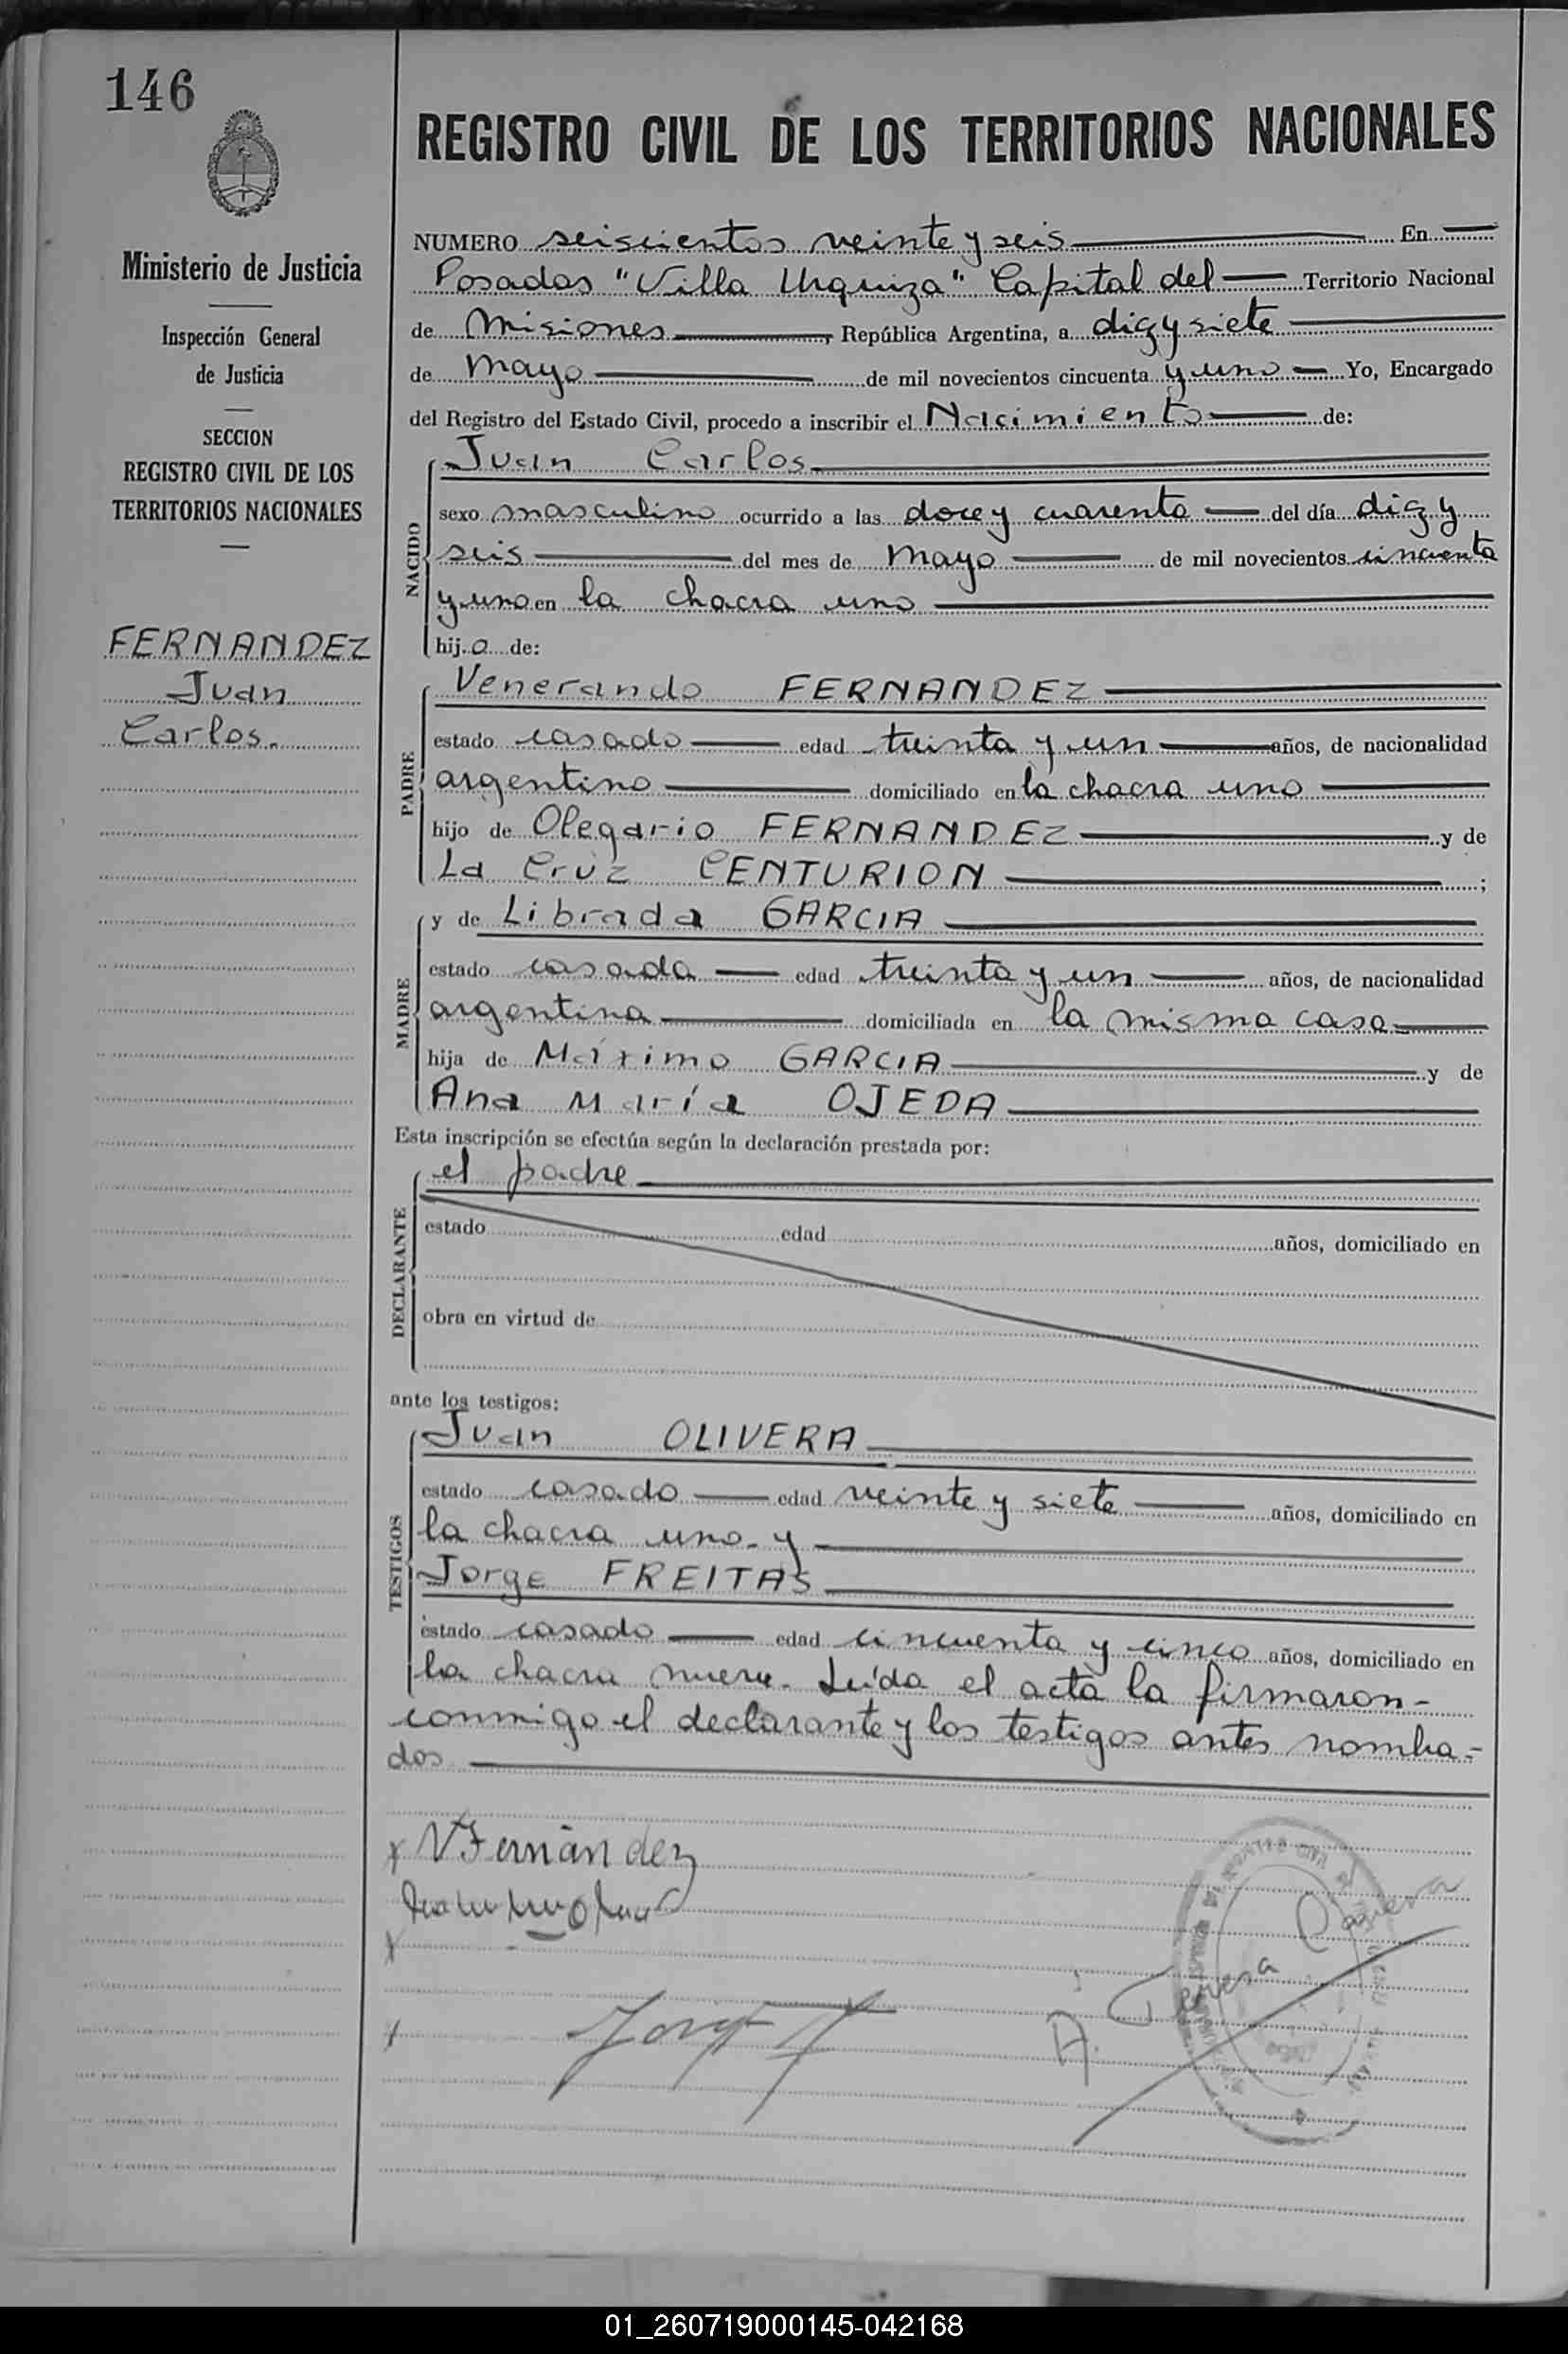 146
REGISTRO CIVIL DE LOS TERRITORIOS NACIONALES
Ministerio de Justicia
Inspección General
de Justicia
SECCION
REGISTRO CIVIL DE LOS
TERRITORIOS NACIONALES
FERNANDEZ
Juan
Carlos.
NUMERO seiscientos veinte y seis En
Posadas "Villa Urquiza" Capital del Territorio Nacional
de Misiones, República Argentina, a diez y siete
de mayo de mil novecientos cincuenta y uno Yo, Encargado
del Registro del Estado Civil, procedo a inscribir el Nacimiento de:
NACIDO
Juan Carlos
sexo masculino ocurrido a las doce y cuarenta del día diez y
seis del mes de mayo de mil novecientos cincuenta
y uno en la chacra uno
hijo de:
PADRE
Venerando FERNANDEZ
estado casado edad treinta y un años, de nacionalidad
argentino domiciliado en la chacra uno
hijo de Olegario FERNANDEZ y de
La Cruz CENTURION ;
MADRE
y de Librada GARCIA
estado casada edad treinta y un años, de nacionalidad
argentina domiciliada en la misma casa
hija de Máximo GARCIA y de
Ana María OJEDA
Esta inscripción se efectúa según la declaración prestada por:
DECLARANTE
el padre
estado edad años, domiciliado en
obra en virtud de
ante los testigos:
TESTIGOS
Juan OLIVERA
estado casado edad veinte y siete años, domiciliado en
la chacra uno. y
Jorge FREITAS
estado casado edad cincuenta y cinco años, domiciliado en
la chacra nueve. Leída el acta la firmaron-
conmigo el declarante y los testigos antes nombra-
dos
x V Fernández
A. Teresa
01_260719000145-042168